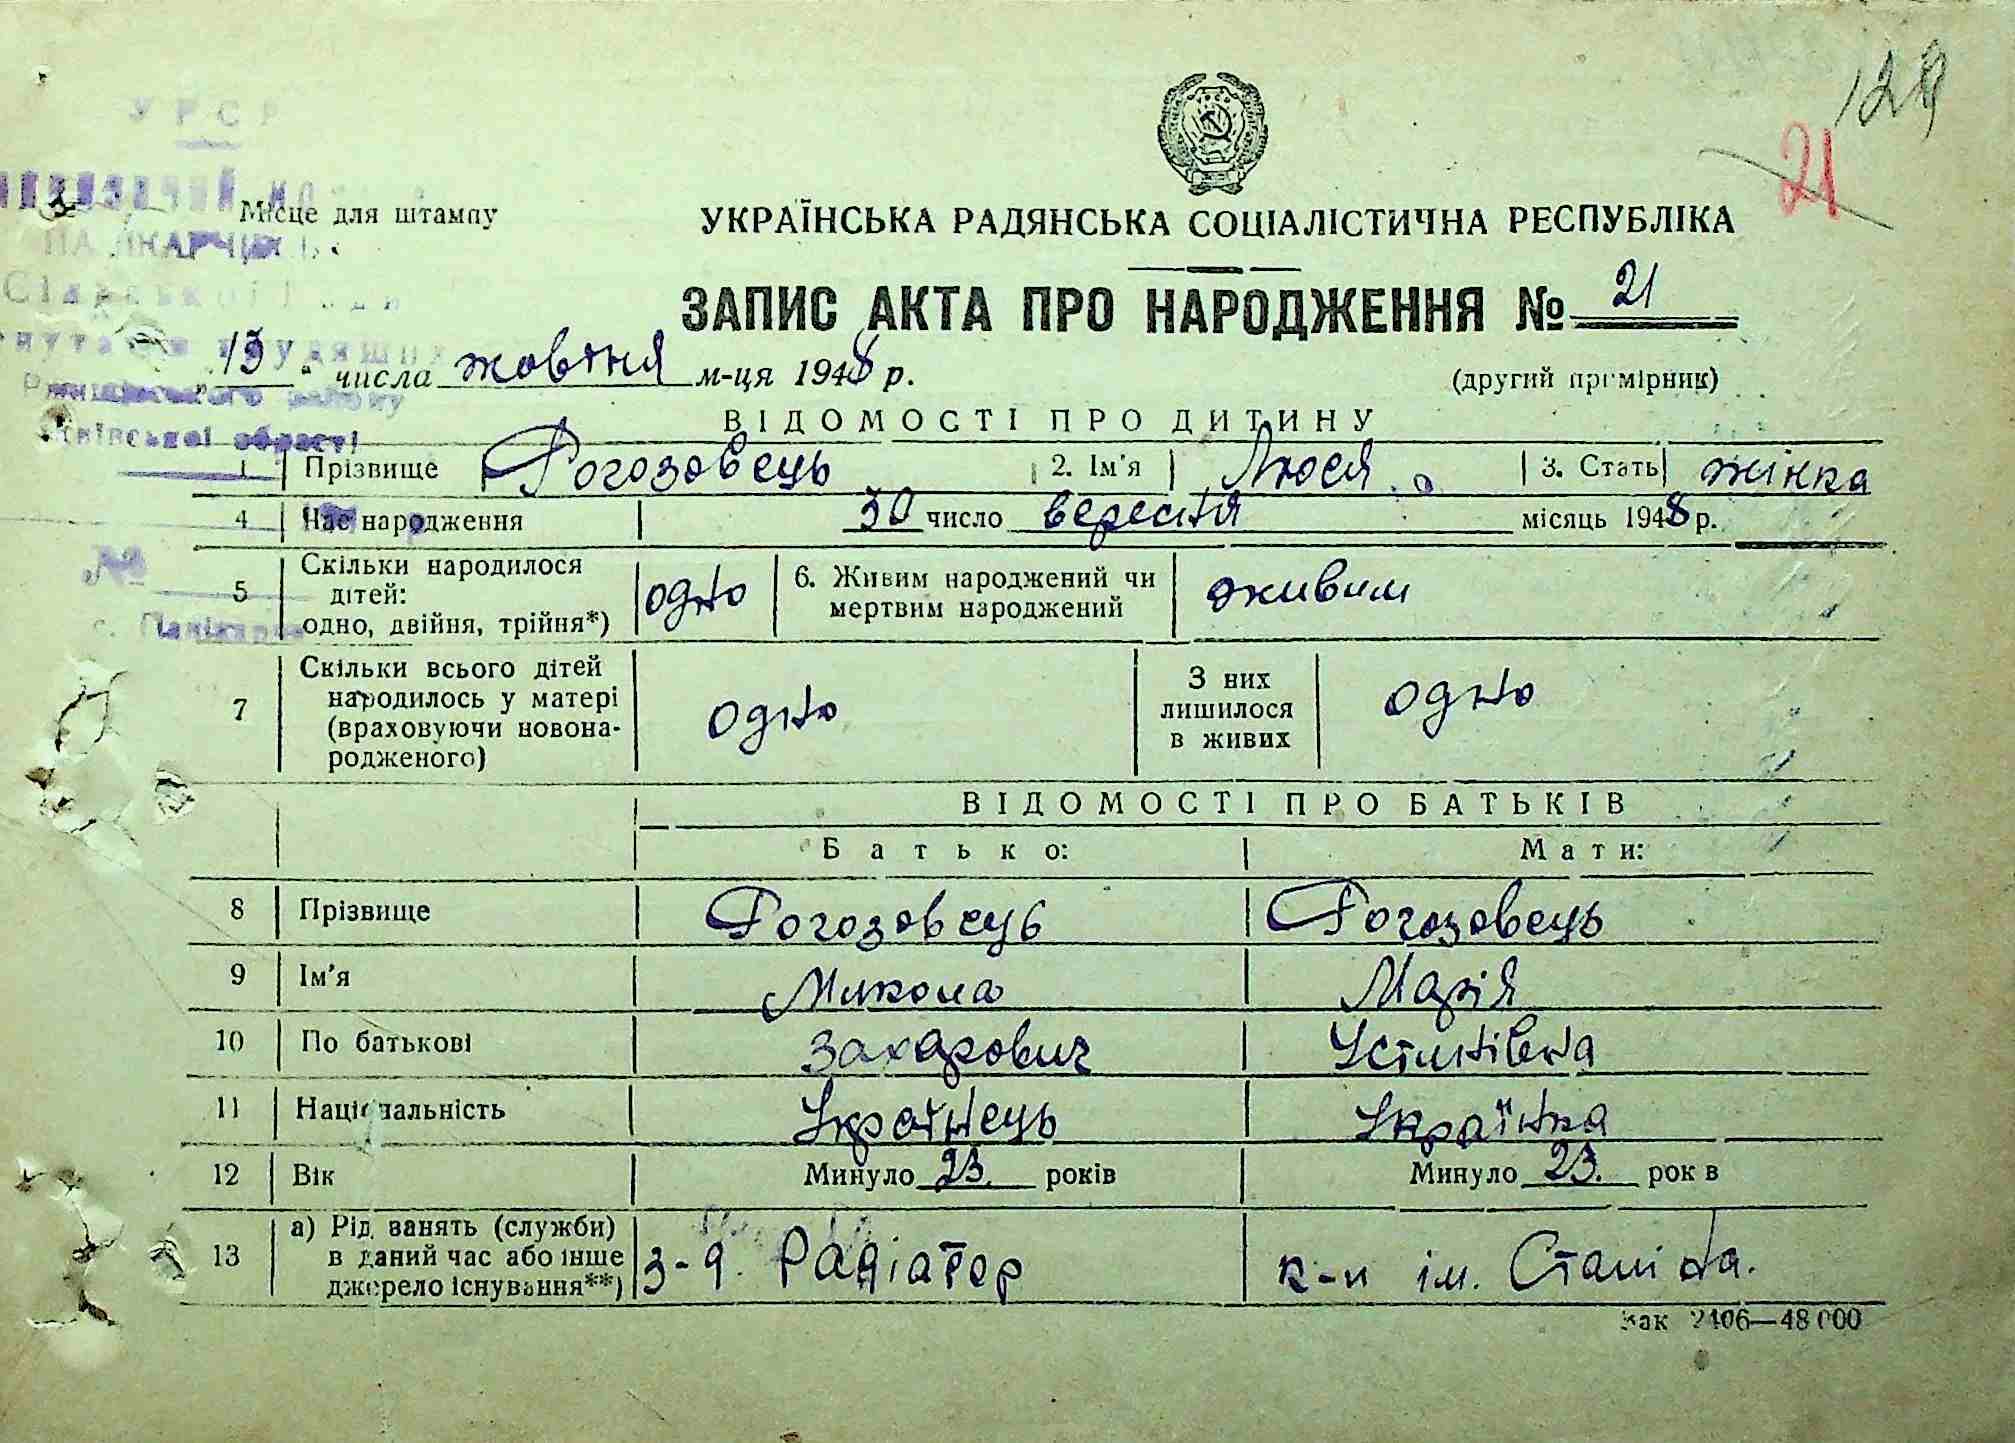 128
21
УРСР
Місце для штампу
УКРАЇНСЬКА РАДЯНСЬКА СОЦІАЛІСТИЧНА РЕСПУБЛІКА
ЗАПИС АКТА ПРО НАРОДЖЕННЯ № 21
„13“ числа жовтня м-ця 1948 р. (другий примірник)
області
ВІДОМОСТІ ПРО ДИТИНУ
1 Прізвище Рогозовець 2. Ім'я Люся 3. Стать жінка
4 Час народження 30 число вересня місяць 1948 р.
№
5 Скільки народилося дітей: одно, двійня, трійня*) одно 6. Живим народжений чи мертвим народжений живим
7 Скільки всього дітей народилось у матері (враховуючи новонародженого) одно З них лишилося в живих одно
ВІДОМОСТІ ПРО БАТЬКІВ
Батько: Мати:
8 Прізвище Рогозовець Рогозовець
9 Ім'я Микола Марія
10 По батькові Захарович Устинівна
11 Національність Українець Українка
12 Вік Минуло 23. років Минуло 23. років
13 а) Рід занять (служби) в даний час або інше джерело існування**) з-д. Радіатор к-п ім. Сталіна.
Зак 2406—48 000